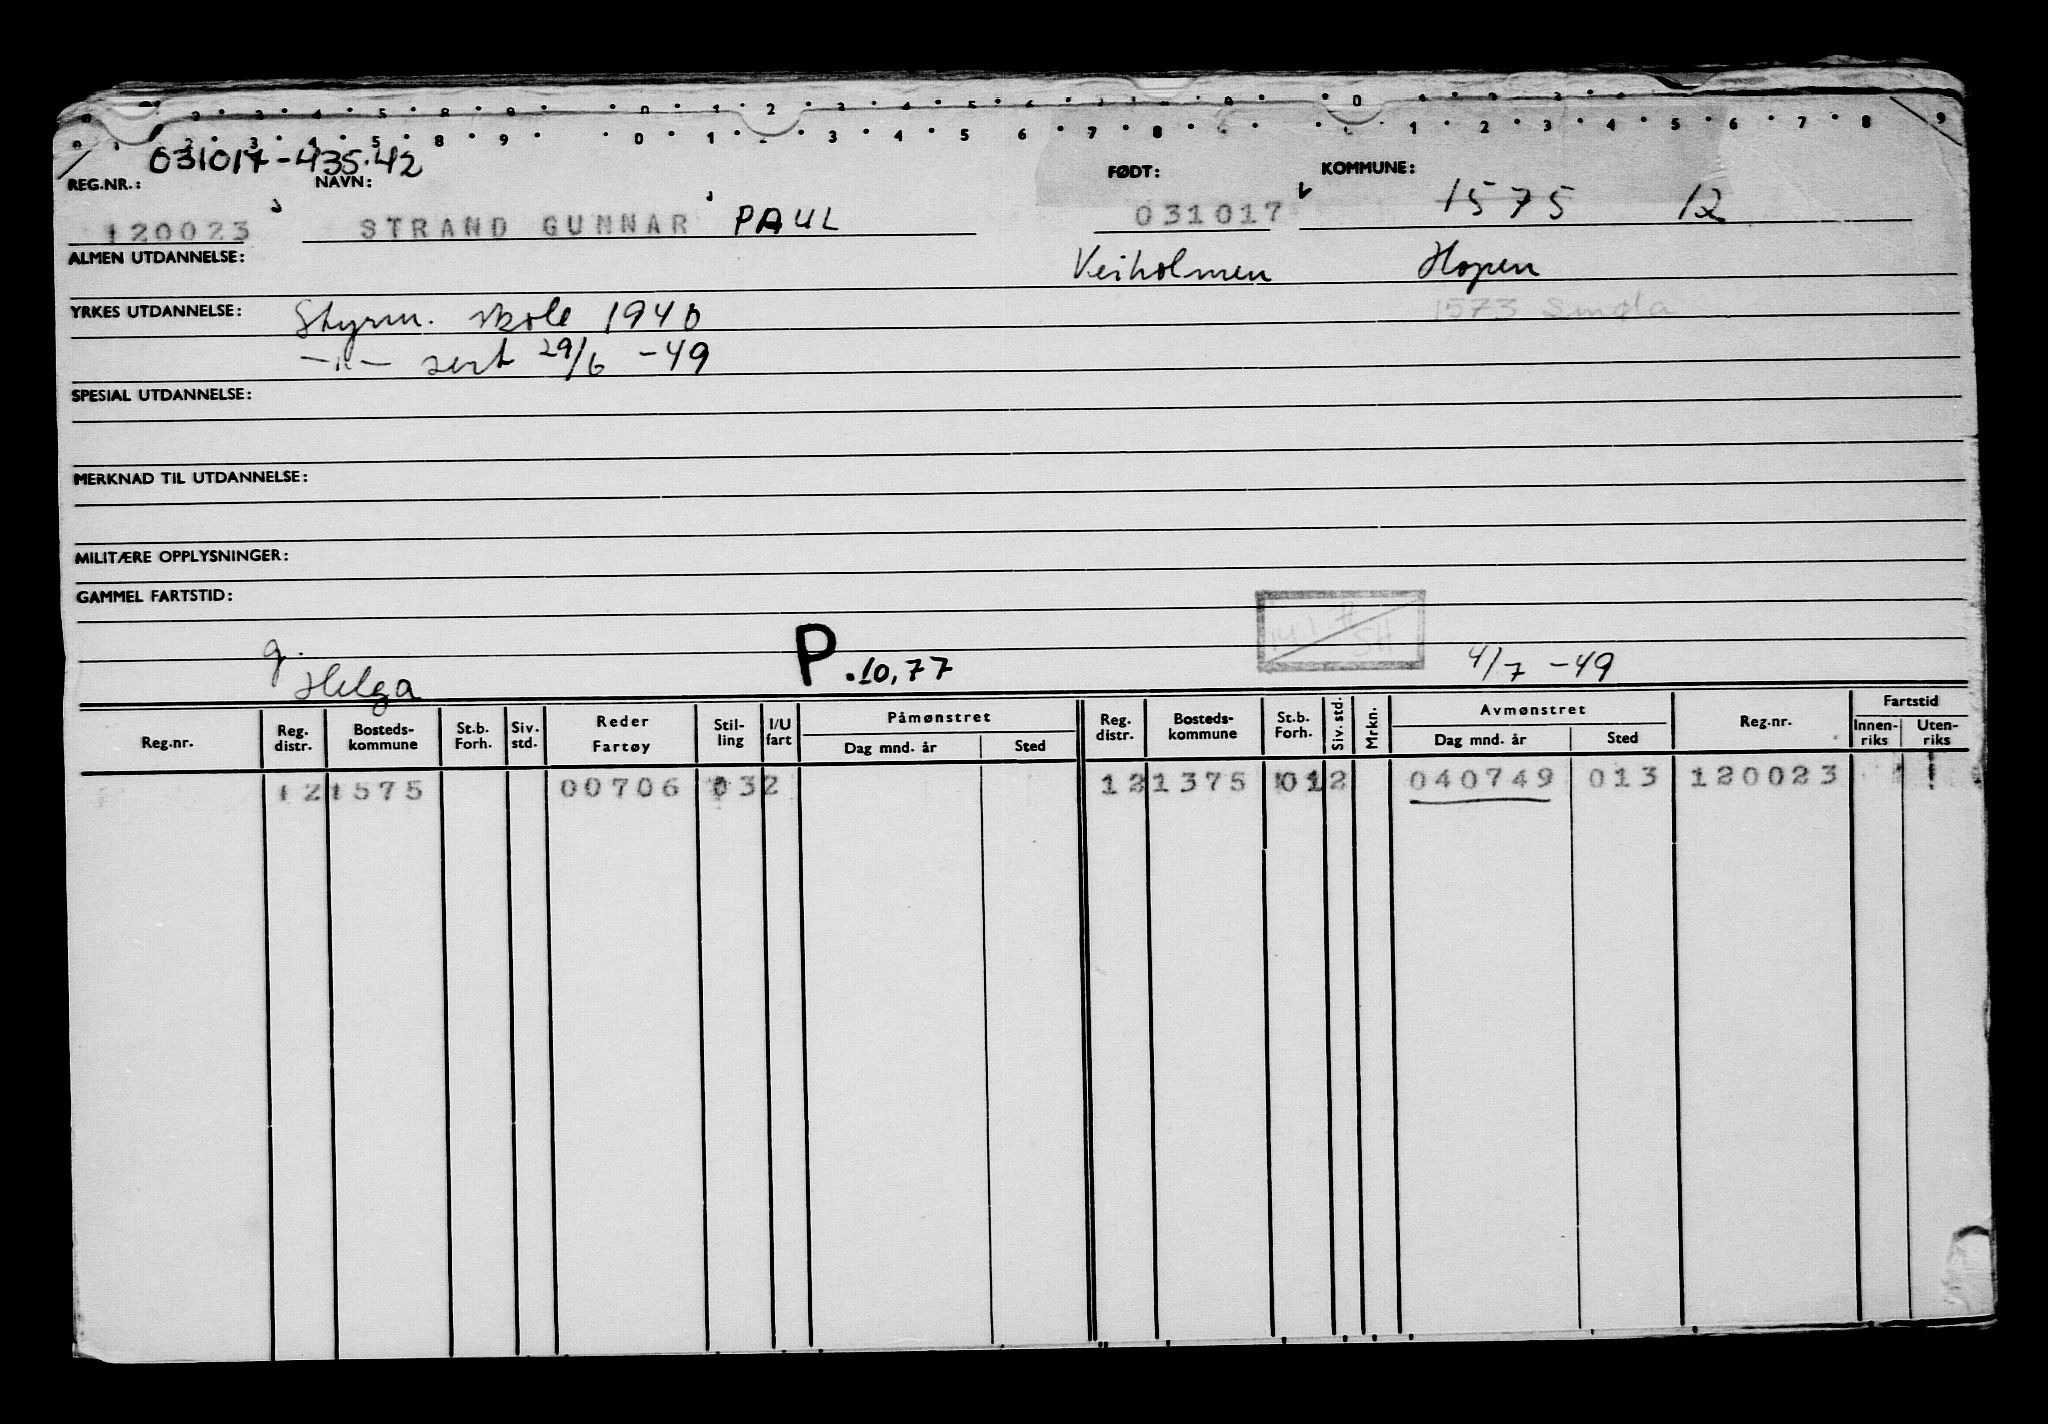 031017-435.42
REG.NR.: NAVN: FØDT: KOMMUNE:
120023 STRAND GUNNAR PAUL 031017 1575 12
ALMEN UTDANNELSE: Veiholmen Hopen
YRKES UTDANNELSE: Styrm. skole 1940 1573 Smøla
—"— sert 29/6 -49
SPESIAL UTDANNELSE:
MERKNAD TIL UTDANNELSE:
MILITÆRE OPPLYSNINGER:
GAMMEL FARTSTID:
g. Helga P.10,77 4/7 -49
Reg.nr. Reg. distr. Bosteds-kommune St.b. Forh. Siv. std. Reder Fartøy Stil-ling I/U fart Påmønstret Dag mnd. år Sted Reg. distr. Bosteds-kommune St.b. Forh. Siv. std. Mrkn. Avmønstret Dag mnd. år Sted Reg.nr. Fartstid Innen-riks Uten-riks
12 1575 00706 032 12 1375 012 040749 013 120023